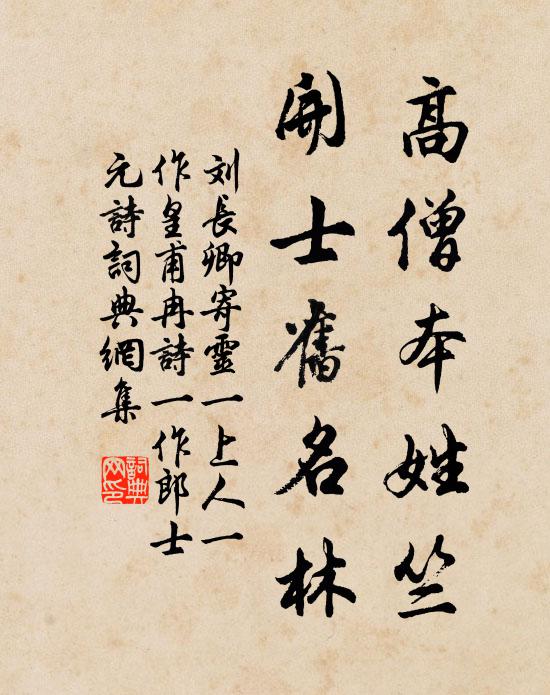 高僧本姓竺
開士舊名林
刘長卿寄靈一上人一
作皇甫冉詩一作郎士
元詩詞典網集
詞典网印